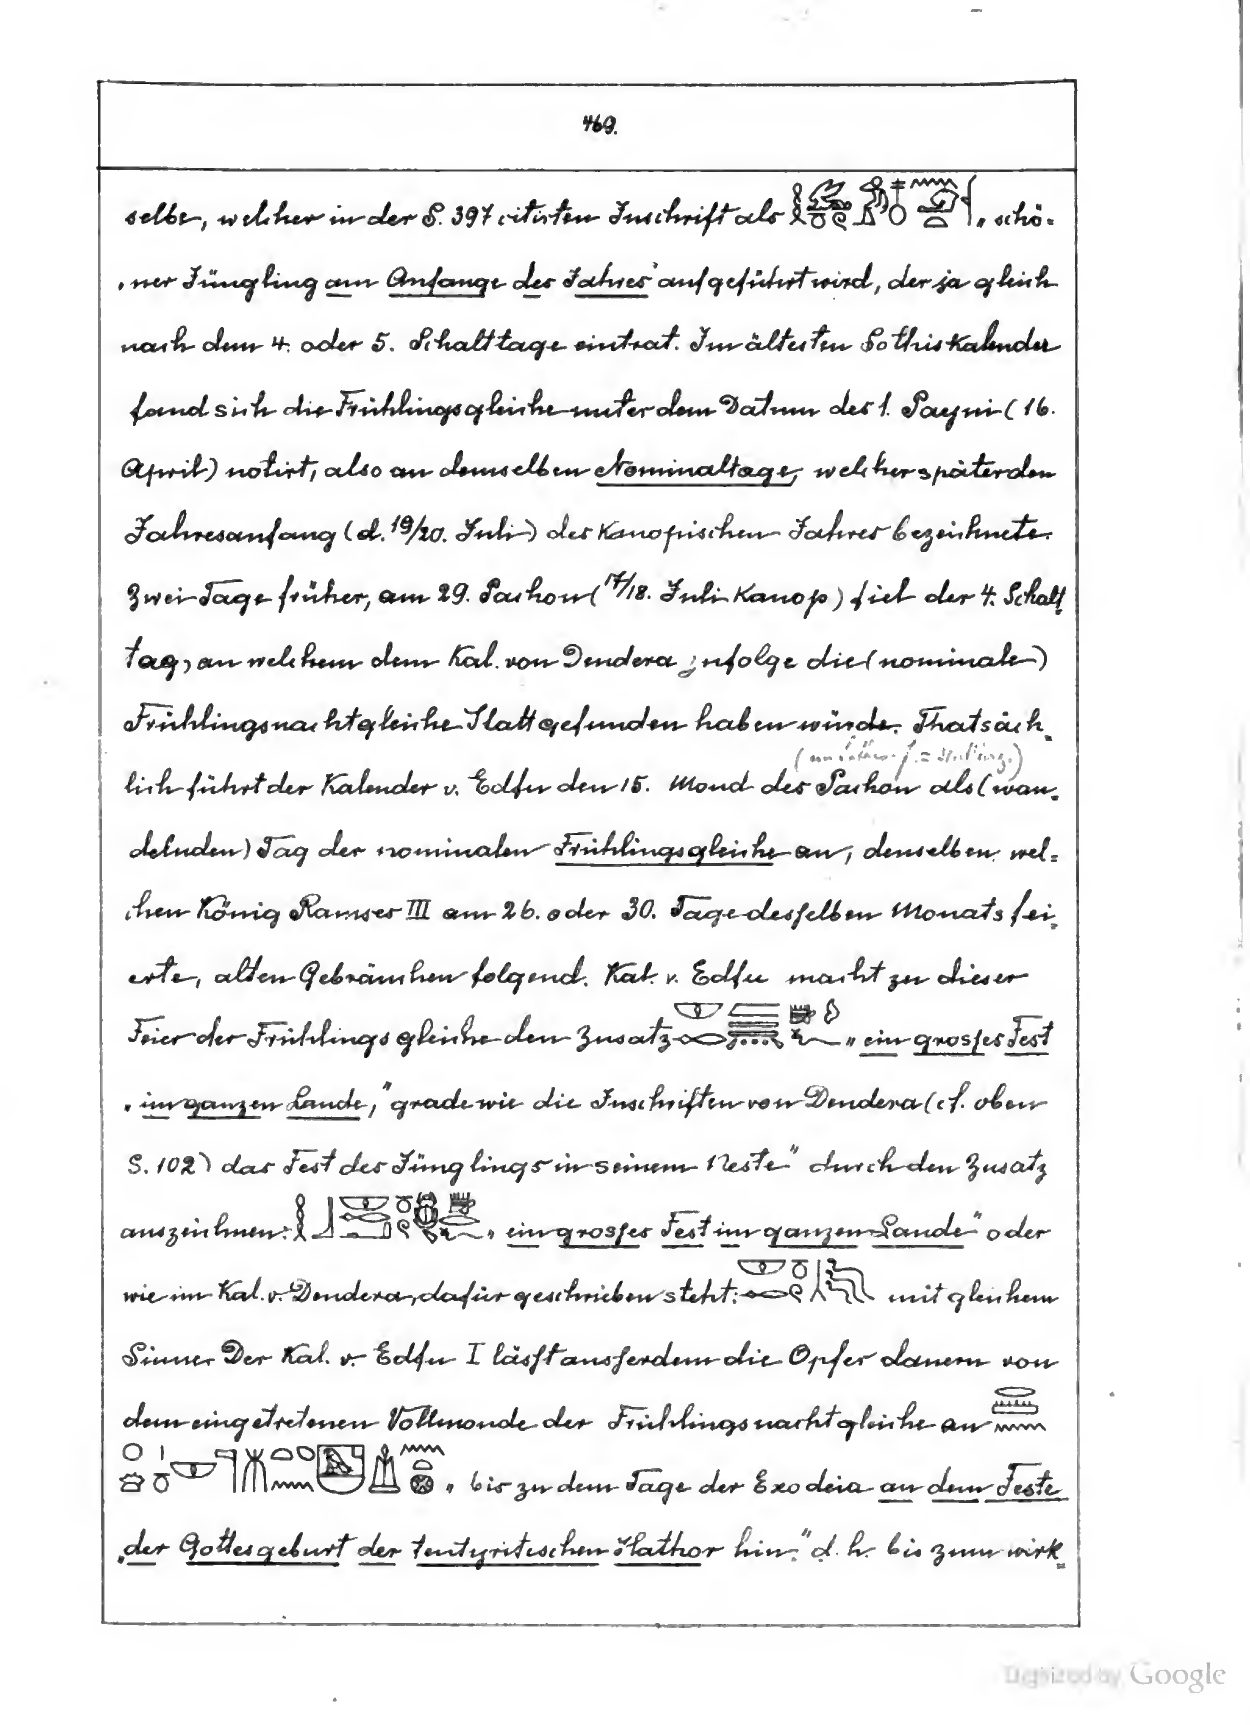 469.
selbe, welcher in der S. 397 citirten Inschrift als „ schö-
„ ner Jüngling am Anfange des Jahres" aufgeführt wird, der ja gleich
nach dem 4. oder 5. Schalttage eintrat. Im ältesten Sothiskalender
fand sich die Frühlingsgleiche unter dem Datum des 1. Payni (16.
April) notirt, also an demselben Nominaltage, welcher später den
Jahresanfang (d. 19/20. Juli) des Kanopischen Jahres bezeichnete.
Zwei Tage früher, am 29. Pachon (17/18. Juli Kanop) fiel der 4. Schalt
tag, an welchem dem Kal. von Dendera zufolge die (nominale)
Frühlingsnachtgleiche Statt gefunden haben würde. Thatsäch-
lich führt der Kalender v. Edfu den 15. Mond des Pachon als (wan-
delnden) Tag der nominalen Frühlingsgleiche an, denselben wel-
chen König Ramses III am 26. oder 30. Tage desselben Monats fei-
erte, alten Gebräuchen folgend. Kal. v. Edfu macht zu dieser
Feier der Frühlingsgleiche den Zusatz „ ein grosses Fest
„ im ganzen Lande," grade wie die Inschriften von Dendera (cf. oben
S. 102) das Fest des Jünglings in seinem Neste" durch den Zusatz
auszeichnen: „ ein grosses Fest im ganzen Lande" oder
wie im Kal. v. Dendera, dafür geschrieben steht: mit gleichem
Sinne. Der Kal. v. Edfu I lässt ausserdem die Opfer dauern von
dem eingetretenen Vollmonde der Frühlingsnachtgleiche an
„ bis zu dem Tage der Exodeia an dem Feste
„ der Gottesgeburt der tentyritischen Hathor hin." d. h. bis zum wirk-
Digitized by Google